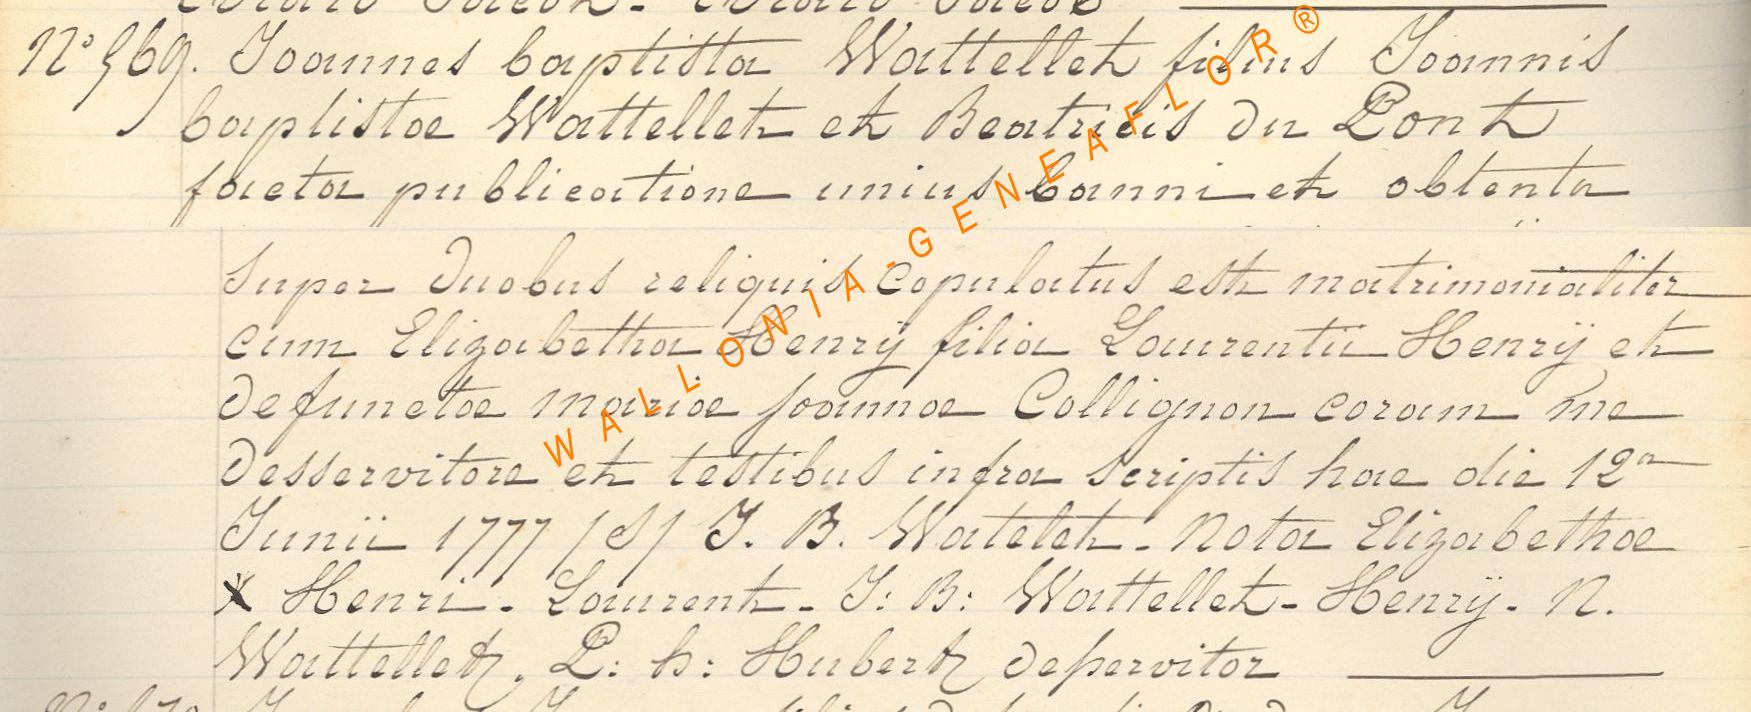 Nº 569. Joannes baptista Wattellet filius Joannis
baptistae Wattellet et Beatricis du Pont
facta publicatione unius banni et obtenta
super duobus reliquis copulatus est matrimonialiter
cum Elizabetha Henrÿ filia Laurentii Henrÿ et
defunctae mariae joannae Collignon coram me
desservitore et testibus infra scriptis hac die 12a
Junii 1777 /S/ J. B. Watelet - Nota Elizabethae
x Henri - Laurent - J: B: Wattellet - Henrÿ - N.
Wattellet, P: h: Hubert deservitor
WALLONIA-GENEAFLOR®